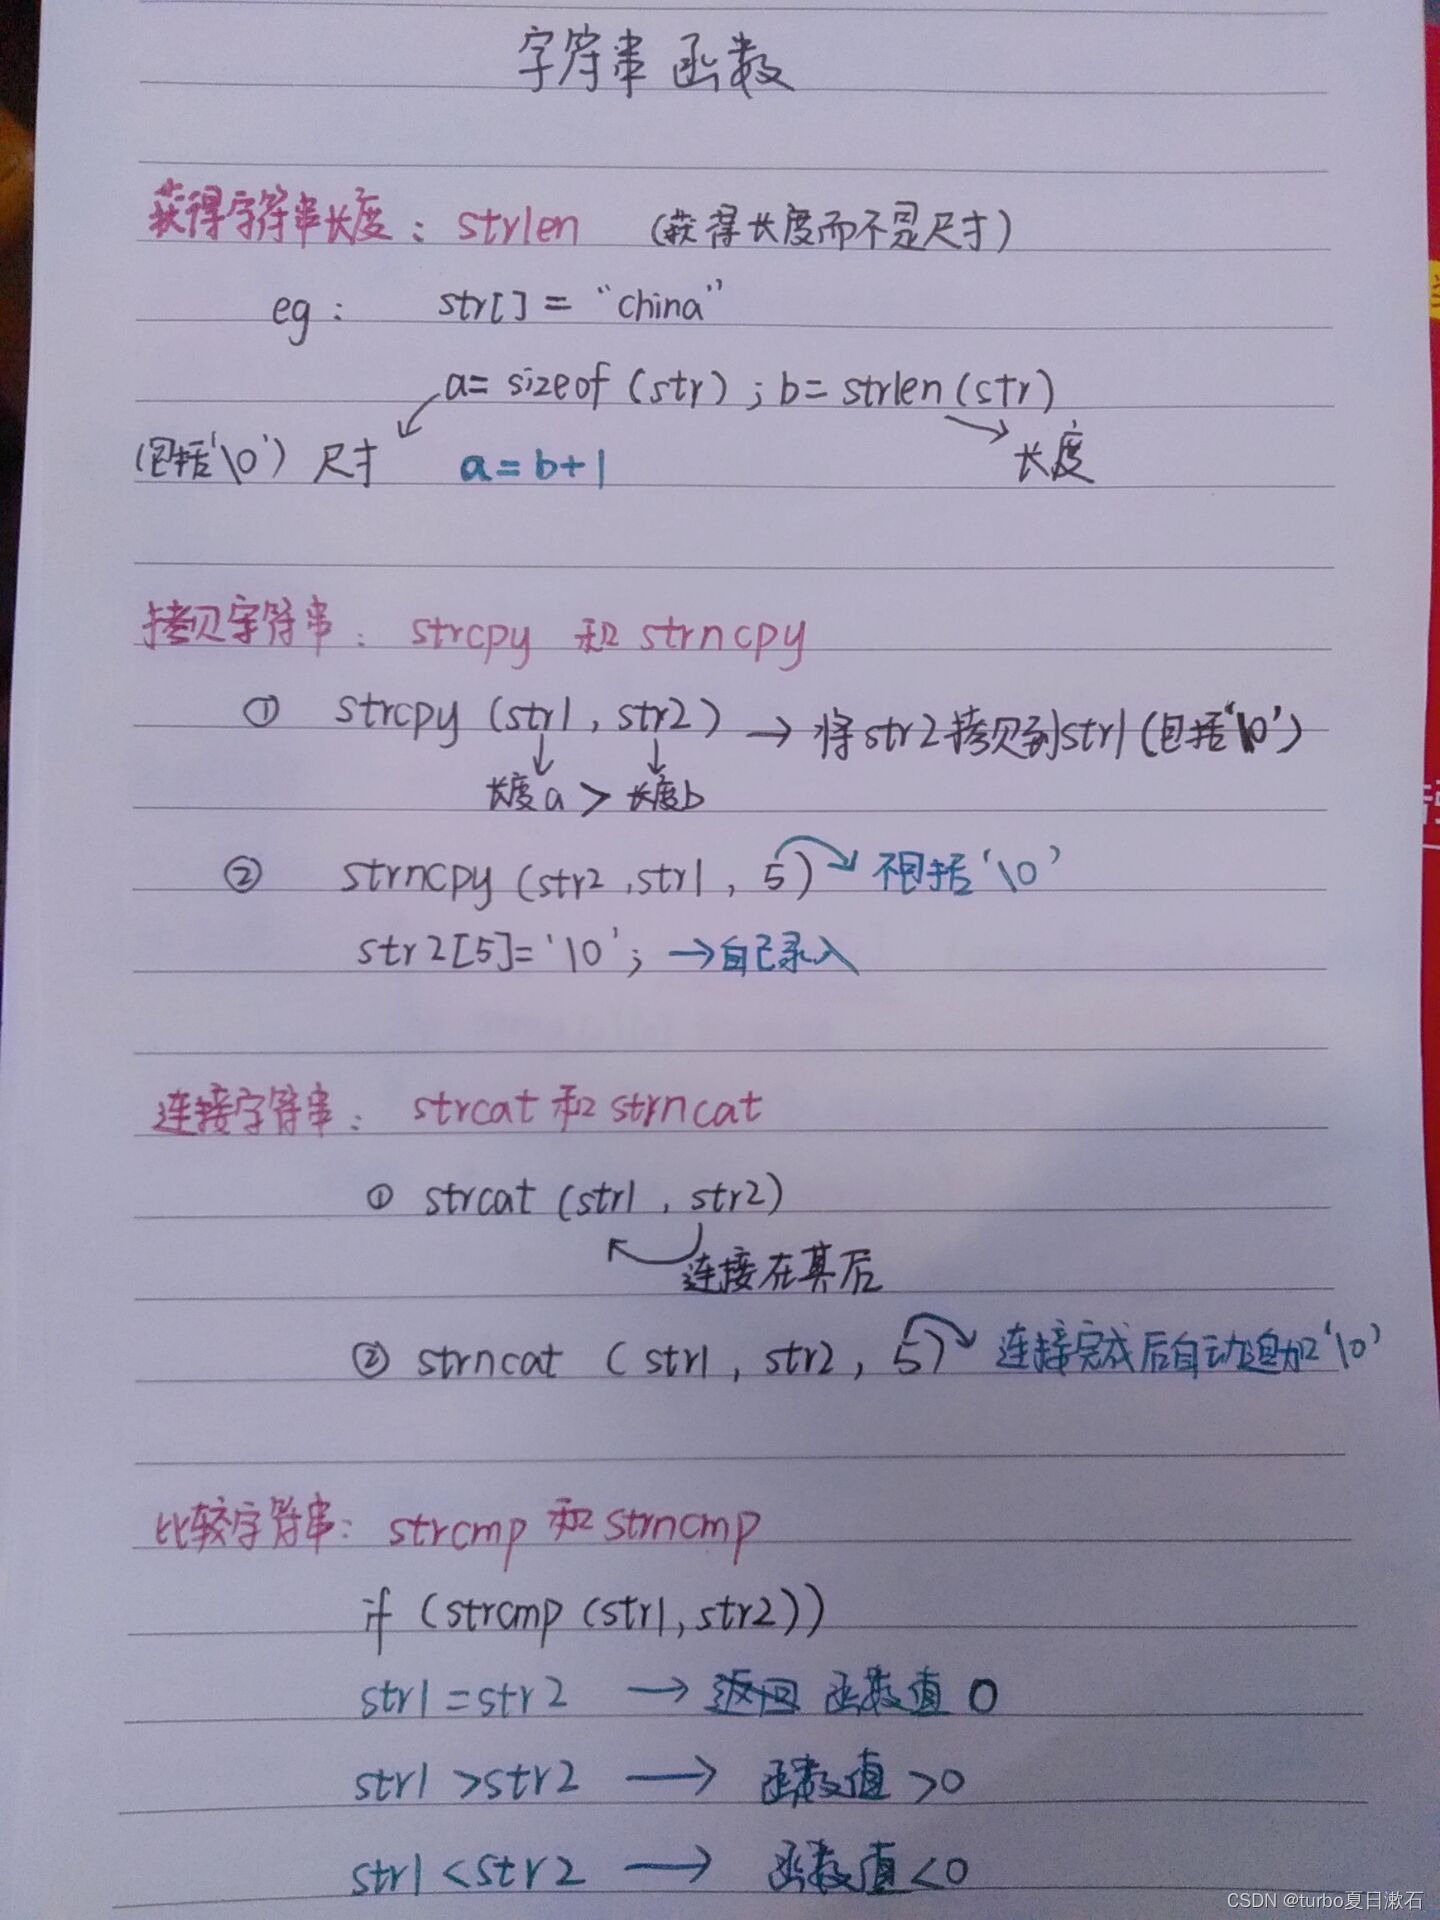 字符串 函数
获得字符串长度：strlen （获得长度而不是尺寸）
eg： str[] = “china”
a= sizeof (str) ; b= strlen (str)
(包括'\0') 尺寸 a = b+1 长度
拷贝字符串： strcpy 和 strncpy
① strcpy (str1, str2) → 将str2拷贝到str1 (包括'\0')
长度a > 长度b
② strncpy (str2 ,str1 , 5) 不包括'\0'
str2[5]='\0'; →自己录入
连接字符串： strcat 和 strncat
① strcat (str1 , str2)
连接在其后
② strncat ( str1 , str2 , 5) 连接完成后自动追加'\0'
比较字符串： strcmp 和 strncmp
if (strcmp (str1,str2))
str1 = str2 → 返回 函数值 0
str1 > str2 → 函数值 >0
str1 < str2 → 函数值 <0
CSDN @turbo夏日漱石